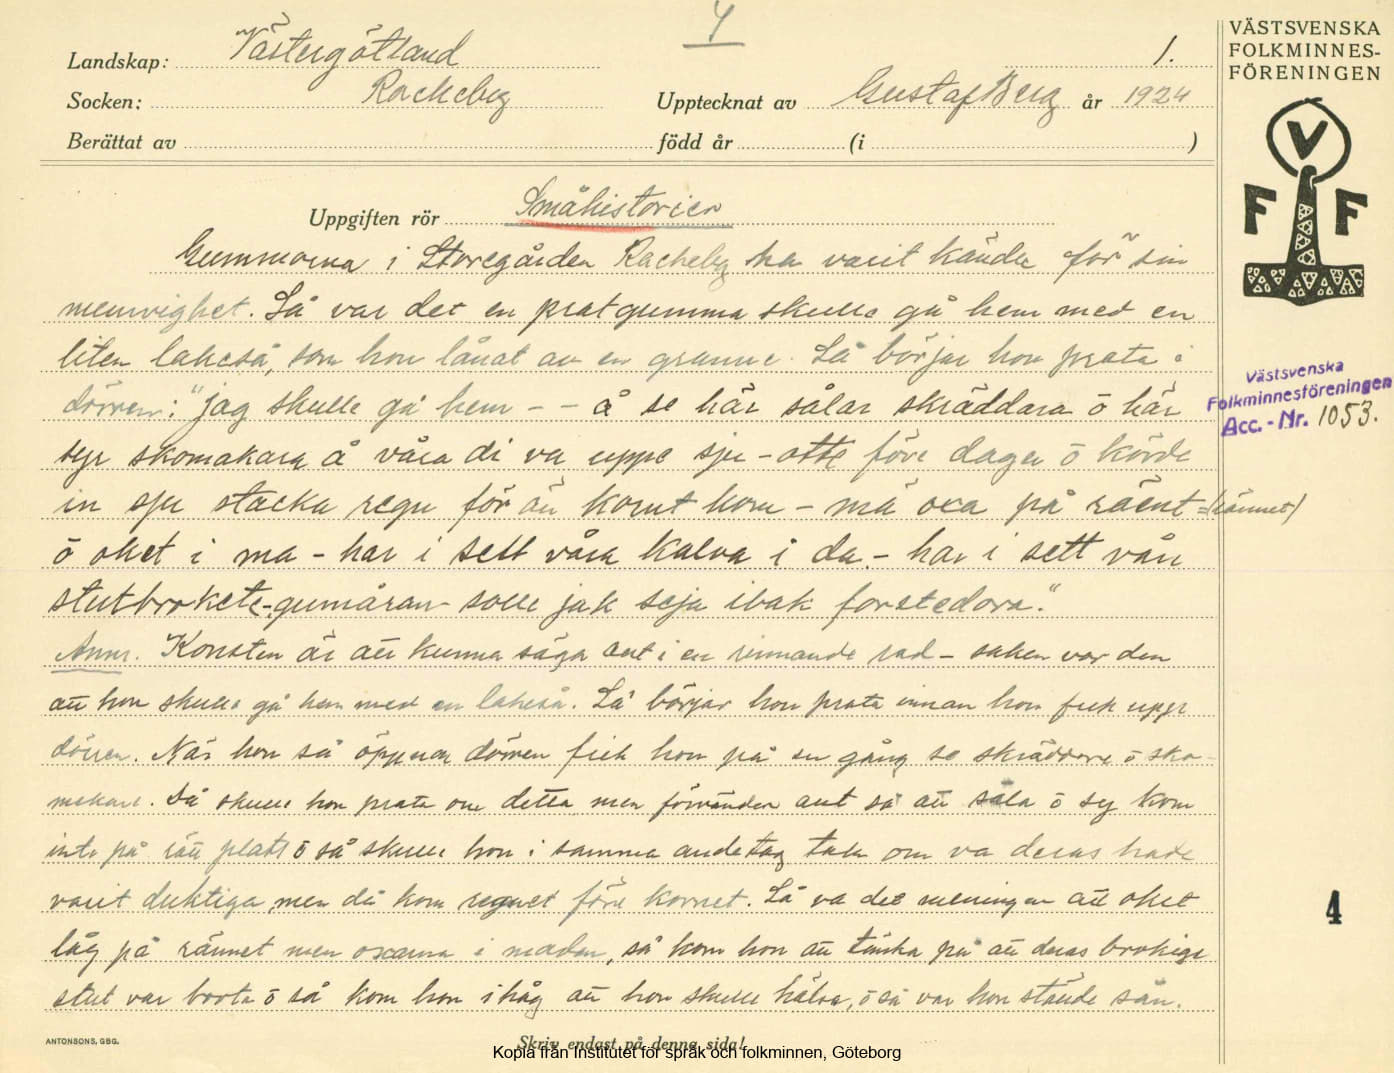 4
Landskap: Västergötland 1.
Socken: Rackeby Upptecknat av Gustaf Berg år 1924
Berättat av född år (i )
Uppgiften rör Småhistorier
Gummorna i Storegården Rackeby ska varit kända för sin
menvighet. Så var det en pratgumma skulle gå hem med en
liten lakeså, som hon lånat av en granne. Så börjar hon prata i
dörren: "jag skulle gå hem - - å se här sålar skräddara ö här
syr skomakara å våra di va uppe sju - otte före dagen ö körde
in sju stacka regn för än kornt kom - mä oxa på räent = (rännet)
ö oket i ma - har i sett våra kalva i da - har i sett vån
stutbrokete - gumåran - solle jak seja ibak forstedora."
Anm. Konsten är att kunna säga aut i en rinnande rad - saken var den
att hon skulle gå hem med en lakeså. Så börjar hon prata innan hon fick upp
dörren. När hon så öppnar dörren fick hon på en gång se skräddare ö sko-
makare. Så skulle hon prata om detta men förvänden aut så att såla ö sy kom
inte på rätt plats ö så skulle hon i samma andetag tala om va deras hade
varit duktiga men då kom regnet före kornet. Så va det meningen att oket
låg på rännet men oxarna i madan, så kom hon att tänka på att deras brokige
stut var borta ö så kom hon ihåg att hon skulle hälsa, ö så var hon stånde sån.
VÄSTSVENSKA
FOLKMINNES-
FÖRENINGEN
V
F F
Västsvenska
Folkminnesföreningen
Acc.-Nr. 1053.
4
ANTONSONS, GBG.
Skriv endast på denna sida!
Kopia från Institutet för språk och folkminnen, Göteborg